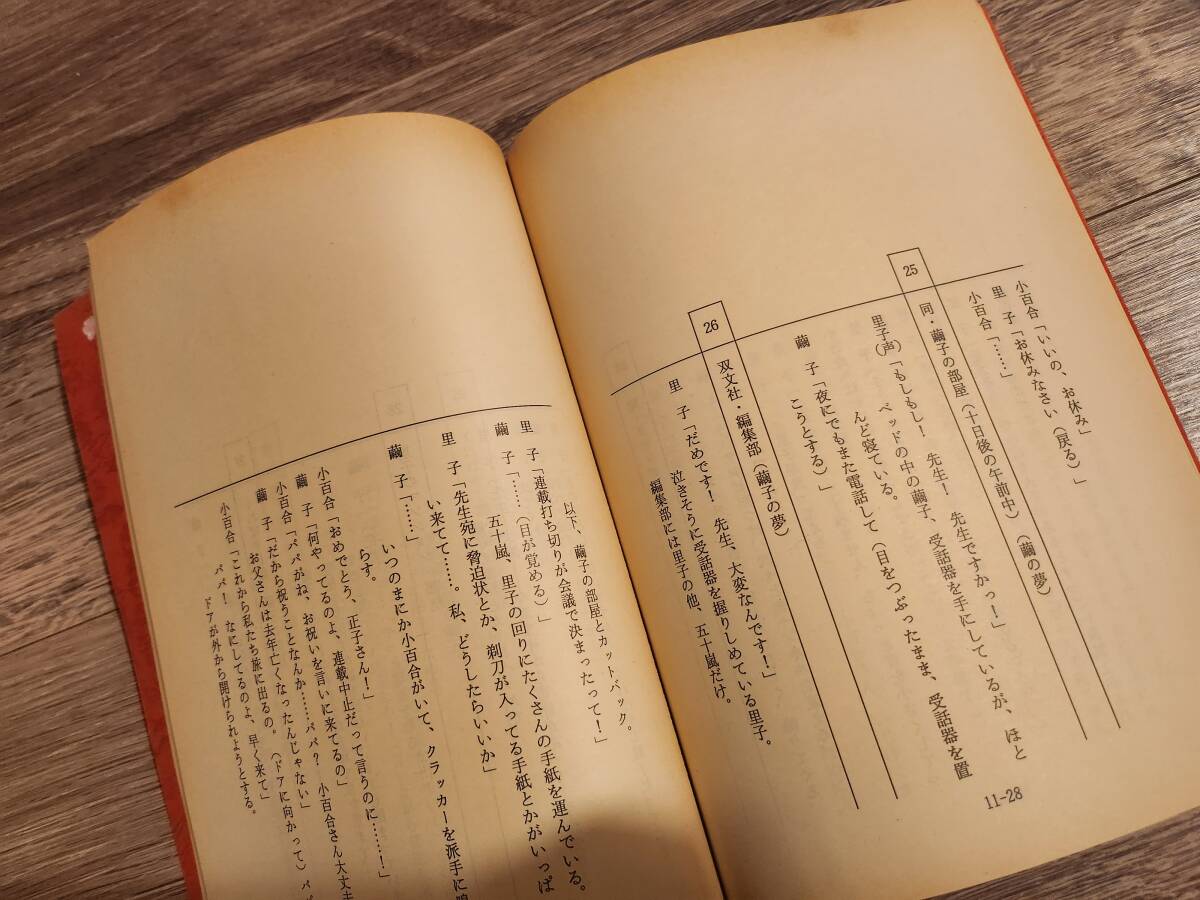 小百合「いいの、お休み」
里　子「お休みなさい（戻る）」
小百合「……」
25
同・繭子の部屋（十日後の午前中）（繭の夢）
里子（声）「もしもし！　先生！　先生ですかっ！」
ベッドの中の繭子、受話器を手にしているが、ほと
んど寝ている。
繭　子「夜にでもまた電話して（目をつぶったまま、受話器を置
こうとする）」
26
双文社・編集部（繭子の夢）
里　子「だめです！　先生、大変なんです！」
泣きそうに受話器を握りしめている里子。
編集部には里子の他、五十嵐だけ。
11-28
以下、繭子の部屋とカットバック。
里　子「連載打ち切りが会議で決まったって！」
繭　子「……（目が覚める）」
五十嵐、里子の回りにたくさんの手紙を運んでいる。
里　子「先生宛に脅迫状とか、剃刀が入ってる手紙とかがいっぱ
い来てて……。私、どうしたらいいか」
繭　子「……」
いつのまにか小百合がいて、クラッカーを派手に
らす。
小百合「おめでとう、正子さん！」
繭　子「何やってるのよ、連載中止だって言うのに……！」
小百合「パパがね、お祝いを言いに来てるの」
繭　子「だから祝うことなんか……パパ？　小百合さん大丈夫
お父さんは去年亡くなったんじゃない」
小百合「これから私たち旅に出るの。（ドアに向かって）パ
パ！　なにしてるのよ、早く来て」
ドアが外から開けられようとする。